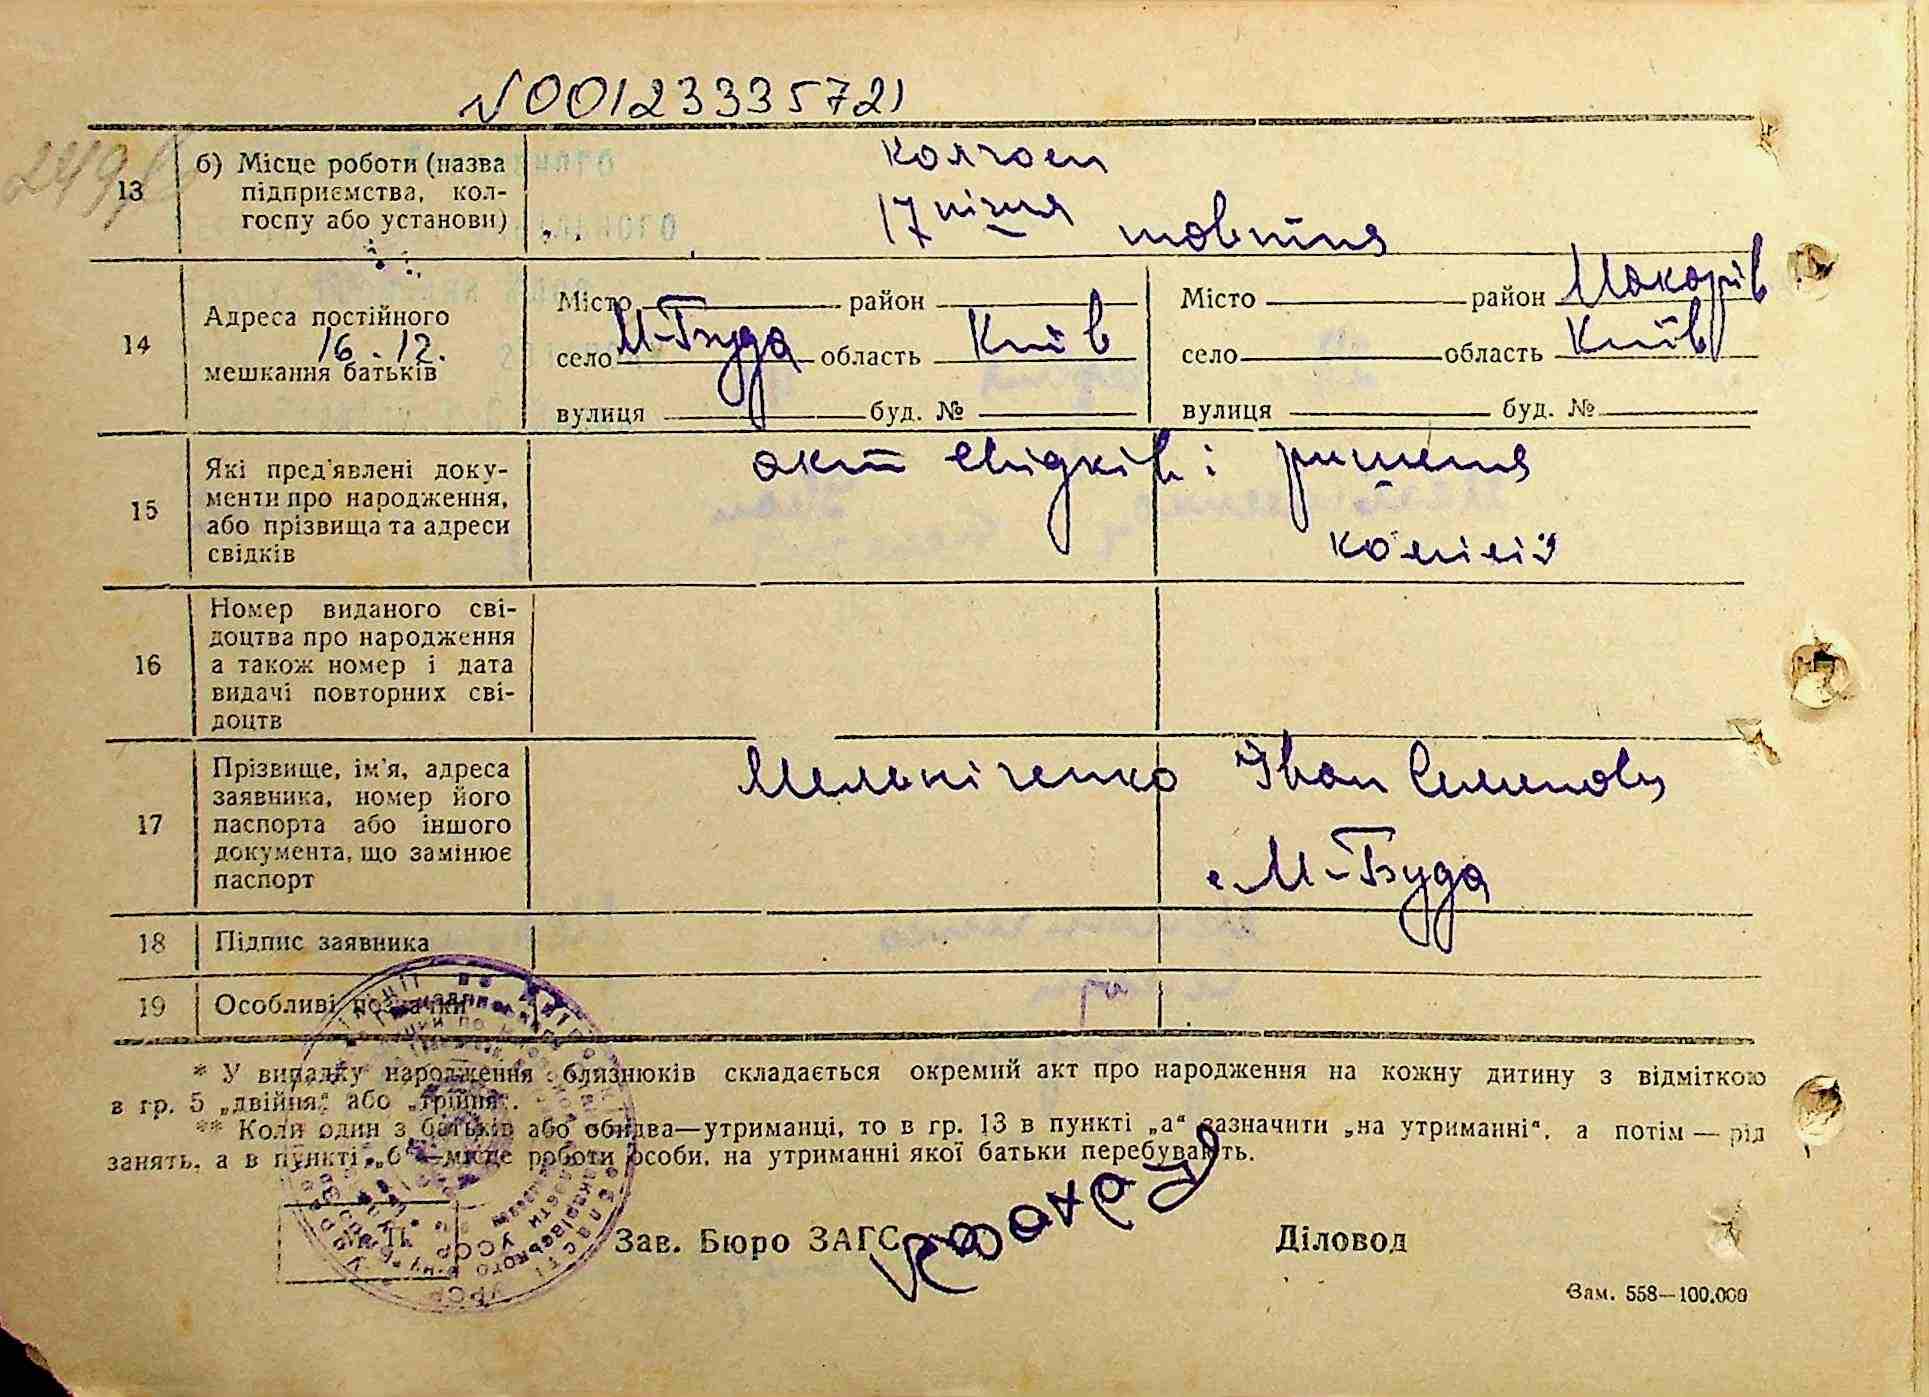 N00123335721
13
б) Місце роботи (назва
підприємства, кол-
госпу або установи)
колгосп
17 річчя жовтня
14
Адреса постійного
16.12.
мешкання батьків
Місто район
село М-Буда область Київ
вулиця буд. №
Місто район Макарів
село область Київ
вулиця буд. №
15
Які пред'явлені доку-
менти про народження,
або прізвища та адреси
свідків
акт свідків і рішення
комісії
16
Номер виданого сві-
доцтва про народження
а також номер і дата
видачі повторних сві-
доцтв
17
Прізвище, ім'я, адреса
заявника, номер його
паспорта або іншого
документа, що замінює
паспорт
Мельніченко Іван
с. М-Буда
18 Підпис заявника
19 Особливі позначки
* У випадку народження близнюків складається окремий акт про народження на кожну дитину з відміткою
в гр. 5 „двійня“ або „трійня“.
** Коли один з батьків або обидва—утриманці, то в гр. 13 в пункті „а“ зазначити „на утриманні“, а потім — рід
занять, а в пункті „б“—місце роботи особи, на утриманні якої батьки перебувають.
Зав. Бюро ЗАГС
Діловод
Зам. 558—100.000